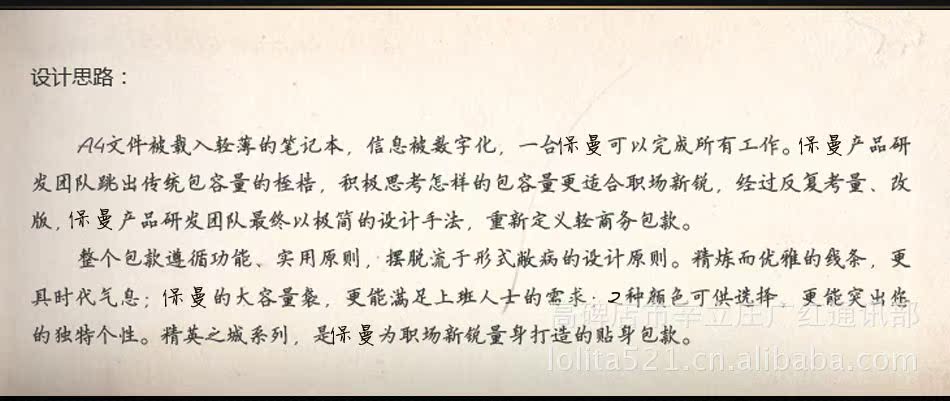 设计思路：
A4文件被载入轻薄的笔记本，信息被数字化，一台保曼可以完成所有工作。保曼产品研
发团队跳出传统包容量的桎梏，积极思考怎样的包容量更适合职场新锐，经过反复考量、改
版，保曼产品研发团队最终以极简的设计手法，重新定义轻商务包款。
整个包款遵循功能、实用原则，摆脱流于形式敝病的设计原则。精炼而优雅的线条，更
具时代气息；保曼的大容量袋，更能满足上班人士的需求；2种颜色可供选择，更能突出您
的独特个性。精英之城系列，是保曼为职场新锐量身打造的贴身包款。
高碑店市辛立庄广红通讯部
lolita521.cn.alibaba.com